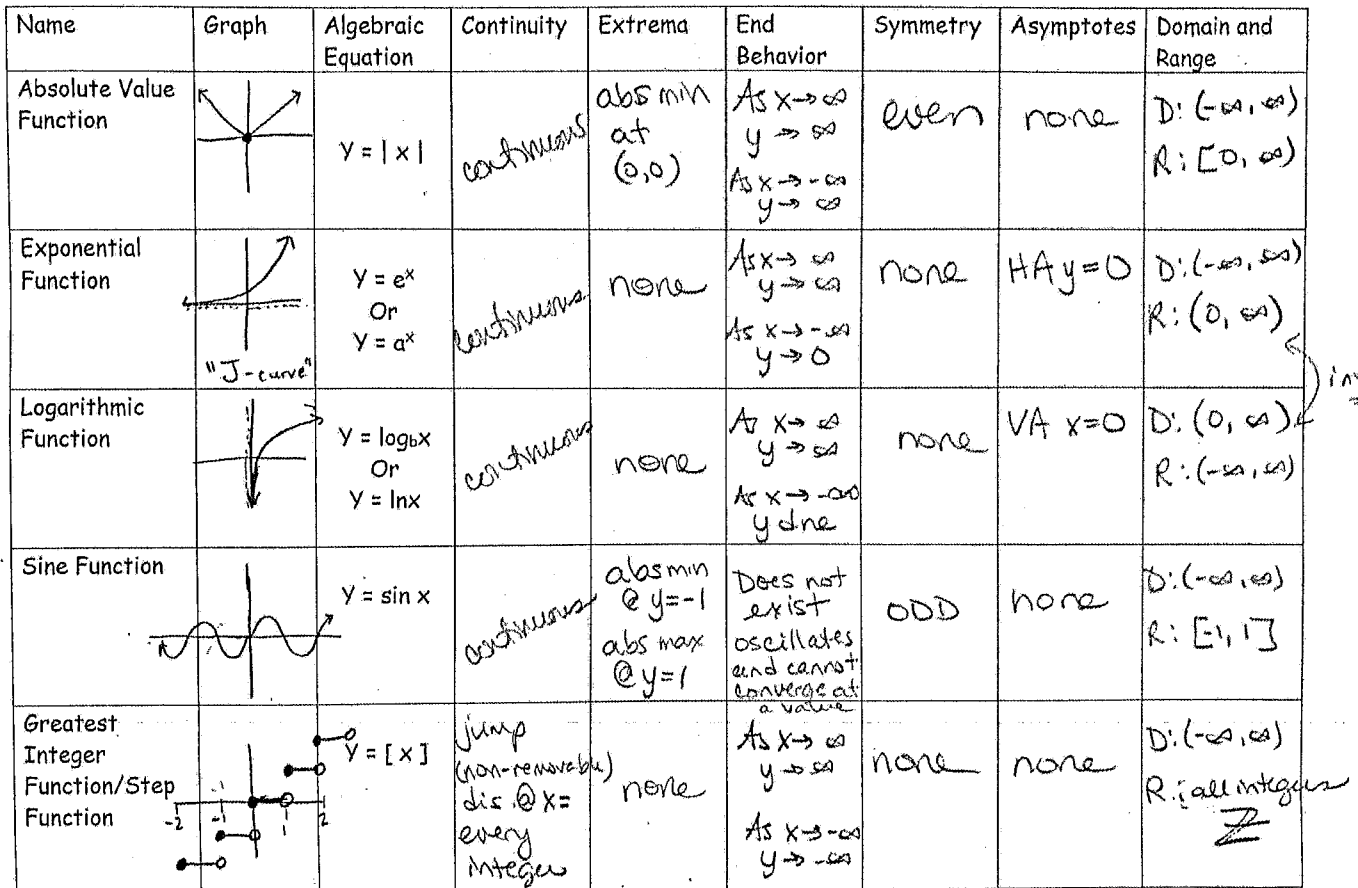 Name Graph Algebraic Equation Continuity Extrema End Behavior Symmetry Asymptotes Domain and Range
Absolute Value Function
Y = | x |
continuous
abs min
at
(0,0)
As x→ ∞
y → ∞
As x → -∞
y → ∞
even
none
D: (-∞, ∞)
R: [0, ∞)
Exponential Function
"J-curve"
Y = eˣ
Or
Y = aˣ
continuous
none
As x → ∞
y → ∞
As x → -∞
y → 0
none
HA y=0
D: (-∞, ∞)
R: (0, ∞)
Logarithmic Function
Y = log_b x
Or
Y = lnx
continuous
none
As x → ∞
y → ∞
As x → -∞
y dne
none
VA x=0
D: (0, ∞)
R: (-∞, ∞)
Sine Function
Y = sin x
continuous
abs min
@ y=-1
abs max
@ y=1
Does not
exist
oscillates
and cannot
converge at
a value
ODD
none
D: (-∞, ∞)
R: [-1, 1]
Greatest
Integer
Function/Step
Function
-2 -1 1 2
Y = [ x ]
jump
(non-removable)
dis. @ x=
every
integer
none
As x → ∞
y → ∞
As x → -∞
y → -∞
none
none
D: (-∞, ∞)
R: {all integers
Z